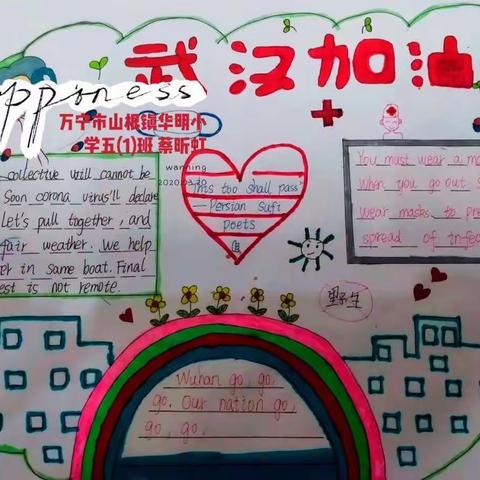 武汉加油
ppiness
万宁市山根镇华明小
学五(1)班 蔡昕虹
wanning
collective will cannot be
Soon corona virus'll declare
Let's pull together, and
fair weather. We help
er in same boat. Final
est is not remote.
This too shall pass
— Persian Sufi
poets
You must wear a ma
When you go out s
wear masks to pre
spread of infec
野生
Wuhan go, go,
go. Our nation go,
go, go.